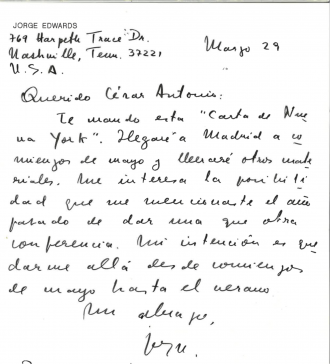 JORGE EDWARDS
769 Harpeth Trace Dr.
Nashville, Tenn. 37221
U.S.A.
Marzo 29
Querido César Antonio:
Te mando esta "Carta de Nue
va York". Llegaré a Madrid a co
mienzos de mayo y llevaré otros mate
riales. Me interesa la posibili
dad que me mencionaste el año
pasado de dar una que otra
conferencia. Mi intención es que
darme allá desde comienzos
de mayo hasta el verano
Un abrazo,
Jorge